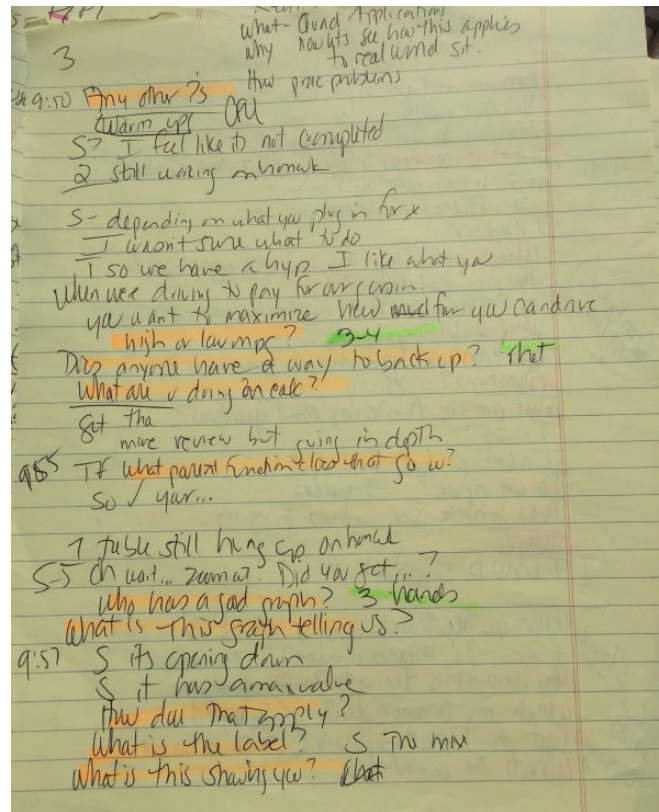 What - Quad Applications
Why Now lets see how this applies
to real world sit.
3
How prac problems
9:50 Any other ?s
Warm ups CPU
S? I feel like its not completed
2 still working on homework
S- depending on what you plug in for x
I wasn't sure what to do
T so we have a hyp I like what you
When we're driving to pay for our
you want to maximize how much you can drive
high or low mpg? 3-4
Does anyone have a way to back up?
What are u doing on calc?
Get tha
more review but going in depth
955 T If What parent function does that go w?
So your...
1 table still hung up on homework
S-S Oh wait... zoom out. Did you get...?
Who has a good graph? 3 hands
What is this graph telling us?
9:57 S its opening down
S it has a max value
How does that apply?
What is the label? S The max
What is this showing you?